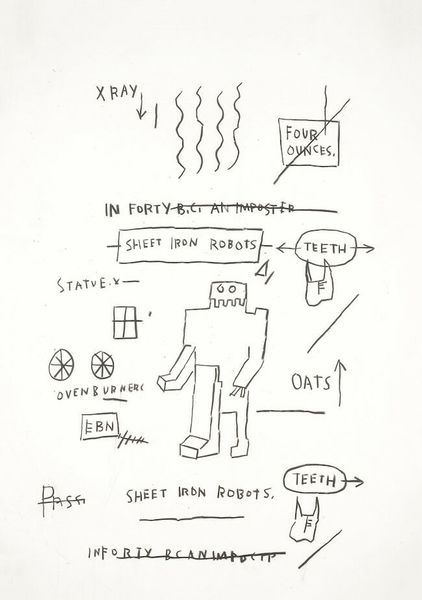 XRAY
FOUR
OUNCES.
IN FORTY B.C. AN IMPOSTER
SHEET IRON ROBOTS
TEETH
F
STATUE.X—
OATS
OVENBURNERS
EBN
SHEET IRON ROBOTS.
TEETH
F
INFORTY BCAN